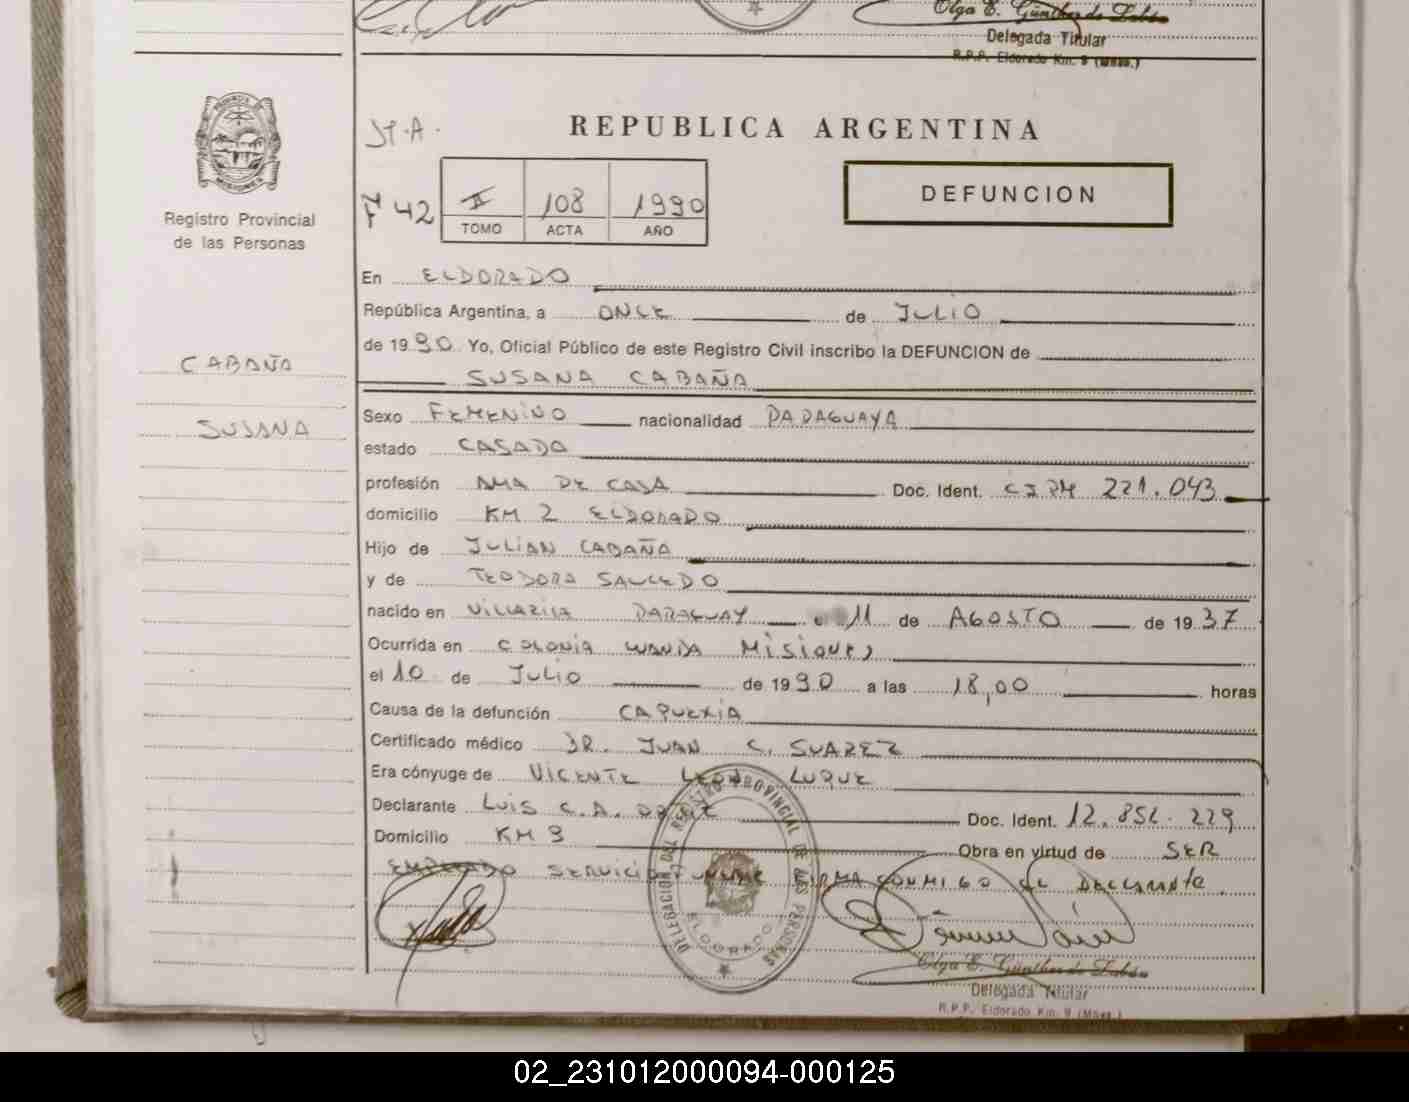 Olga E. Günther de Labán
Delegada Titular
R.P.P. Eldorado Km. 9 (Mnes.)
PROVINCIA DE
MISIONES
Registro Provincial
de las Personas
CABAÑA
SUSANA
REPUBLICA ARGENTINA
F 42
II 108 1990
TOMO ACTA AÑO
DEFUNCION
En ELDORADO
República Argentina, a ONCE de JULIO
de 1990 Yo, Oficial Público de este Registro Civil inscribo la DEFUNCION de
SUSANA CABAÑA
Sexo FEMENINO nacionalidad PARAGUAYA
estado CASADA
profesión AMA DE CASA Doc. Ident. CIPM 221.043
domicilio KM 2 ELDORADO
Hijo de JULIAN CABAÑA
y de TEODORA SAUCEDO
nacido en VILLARICA PARAGUAY e 11 de AGOSTO de 1937
Ocurrida en COLONIA WANDA MISIONES
el 10 de JULIO de 1990 a las 18,00 horas
Causa de la defunción CAQUEXIA
Certificado médico DR. JUAN C. SUAREZ
Era cónyuge de VICENTE LEON LUQUE
Declarante LUIS C.A. Doc. Ident. 12.852.229
Domicilio KM 9 Obra en virtud de SER
EMPLEADO SERVICIO FUNEBRE FIRMA CONMIGO EL DECLARANTE
DELEGACION DEL REGISTRO PROVINCIAL DE LAS PERSONAS
ELDORADO
Olga E. Günther de Labán
Delegada Titular
R.P.P. Eldorado Km. 9 (Mnes.)
02_231012000094-000125